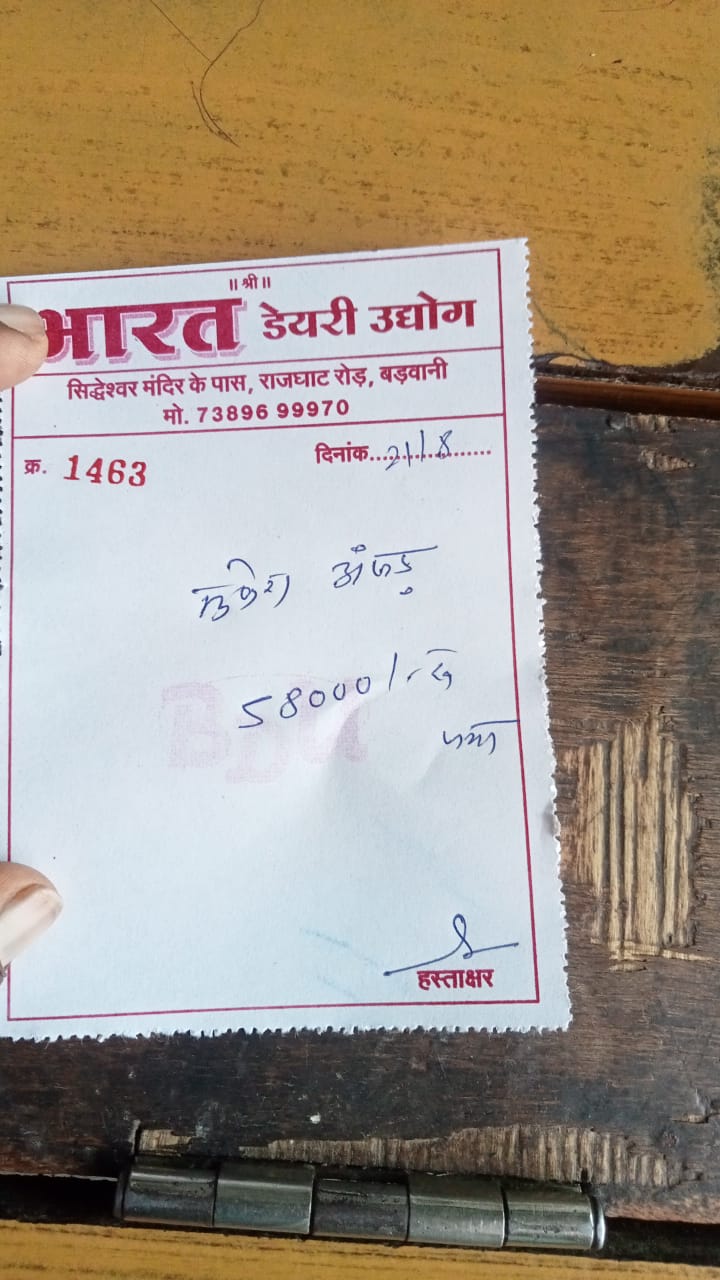 ॥ श्री ॥
भारत डेयरी उद्योग
सिद्धेश्वर मंदिर के पास, राजघाट रोड़, बड़वानी
मो. 73896 99970
क्र. 1463 दिनांक 21/8
मुकेश अंजड़
58000/-
जमा
हस्ताक्षर